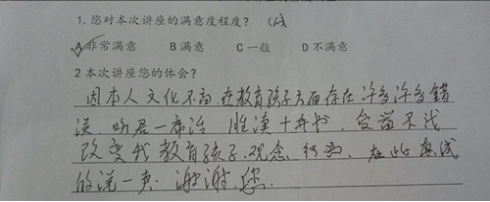 1. 您对本次讲座的满意度程度？
A非常满意 B满意 C一般 D不满意
2 本次讲座您的体会？
因本人文化不高，在教育孩子方面存在许多许多错
误，听君一席话 胜读十年书，受益不浅
改变我教育孩子，观念，行为，在此真诚
的说一声，谢谢，您.